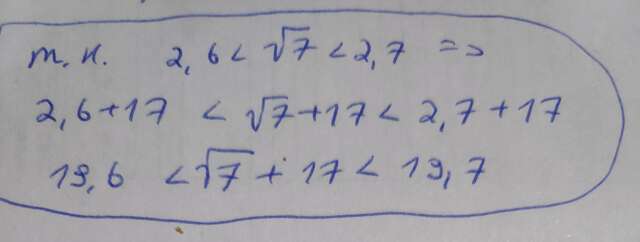 т.к. 2,6 < √7 < 2,7 =>
2,6+17 < √7+17 < 2,7+17
19,6 < √7 + 17 < 19,7